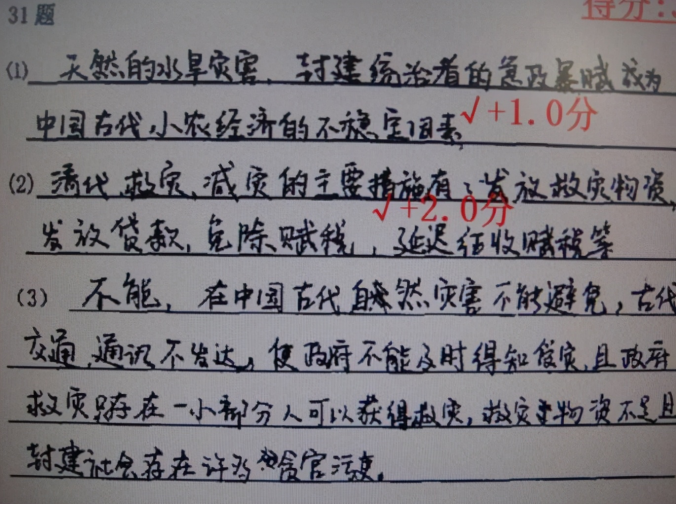 31题
得分:
(1) 天然的水旱灾害,封建统治者的急政暴赋成为
中国古代小农经济的不稳定因素 √+1.0分
(2) 清代救灾、减灾的主要措施有:发放救灾物资,
√+2.0分
发放贷款,免除赋税,延迟征收赋税等
(3) 不能,在中国古代自然灾害不能避免,古代
交通,通讯不发达,使政府不能及时得知灾,且政府
救灾只存在一小部分人可以获得救灾,救灾物资不足且
封建社会存在许多贪官污吏。